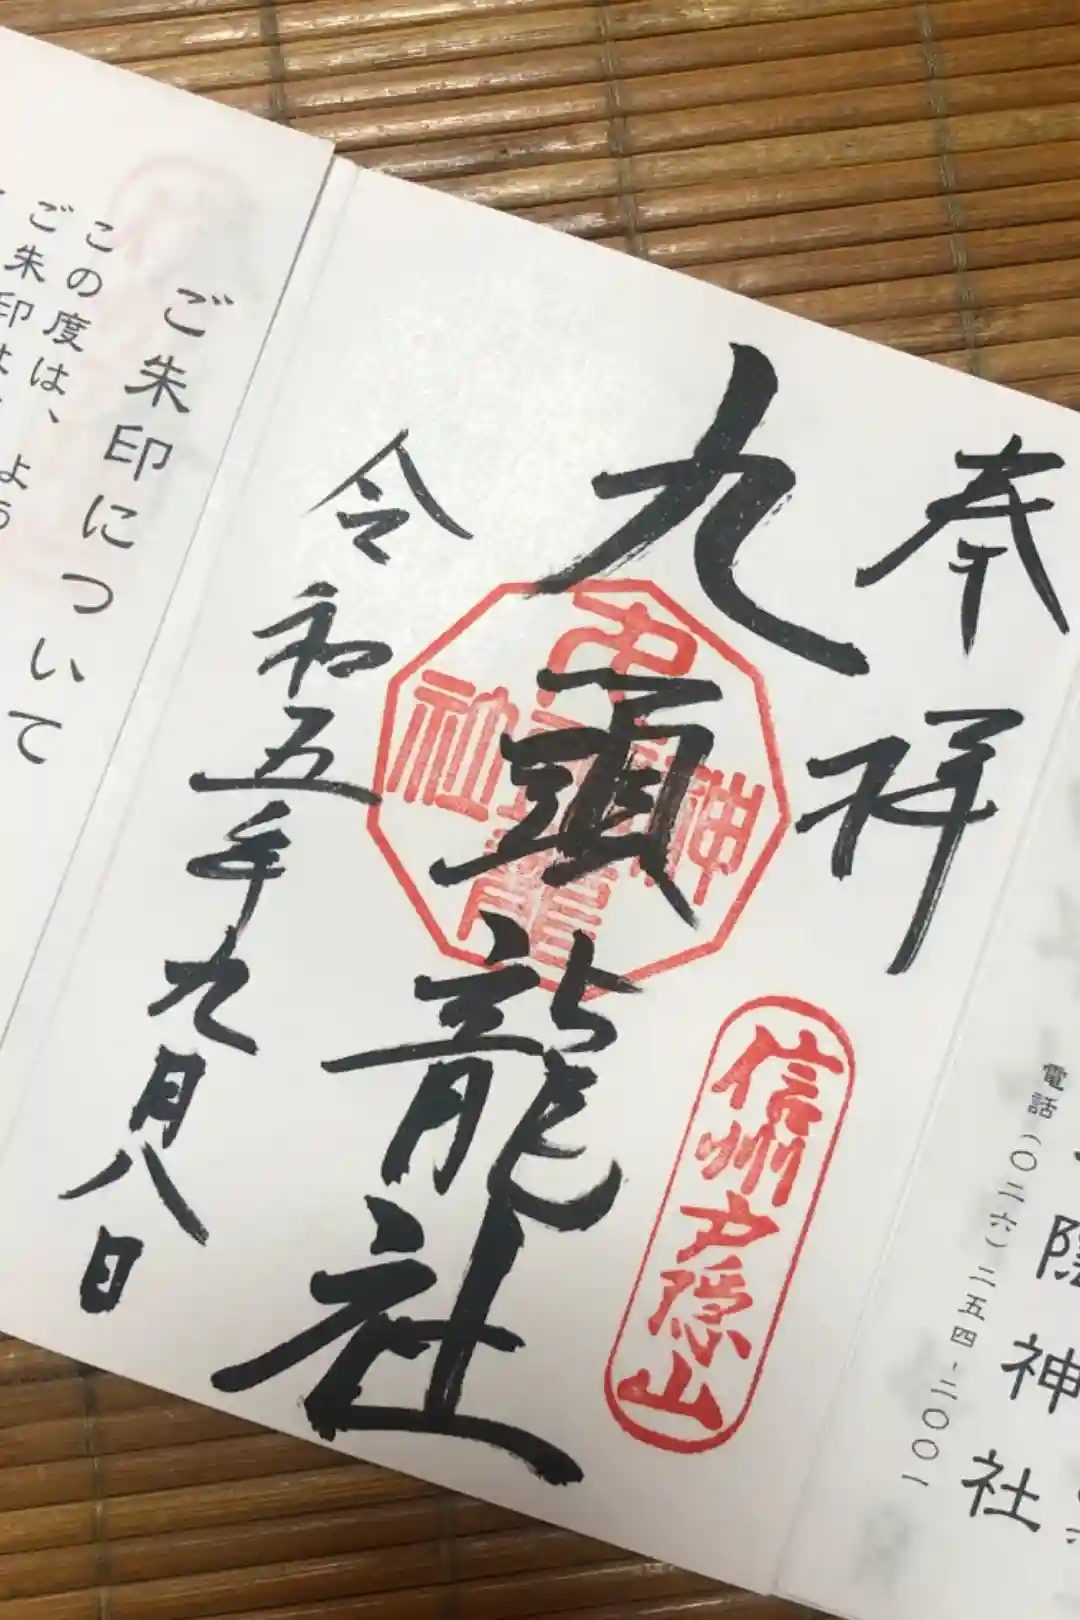 奉拝
九頭龍社
令和五年九月八日
信州戸隠山
ご朱印について
この度は、
ご朱印は
よう
隠神社
電話(〇二六)二五四-二〇〇一